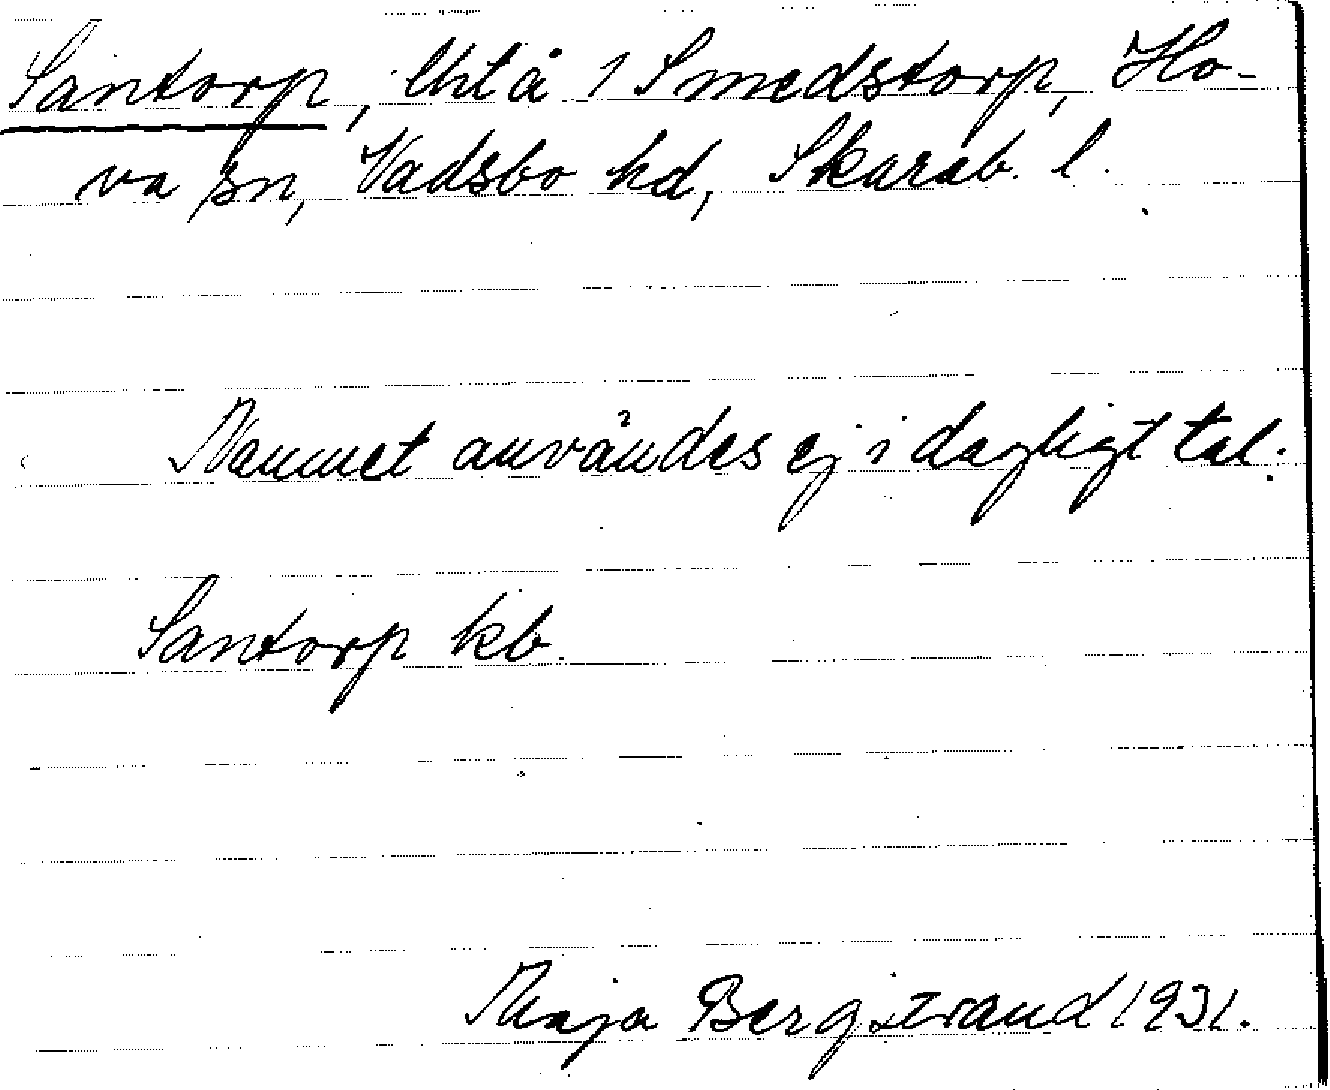 Santorp, lht å 1 Smedstorp, Ho-
va sn, Vadsbo hd, Skarab. l.
Namnet användes ej i dagligt tal.
Santorp kb.
Maja Bergstrand 1931.